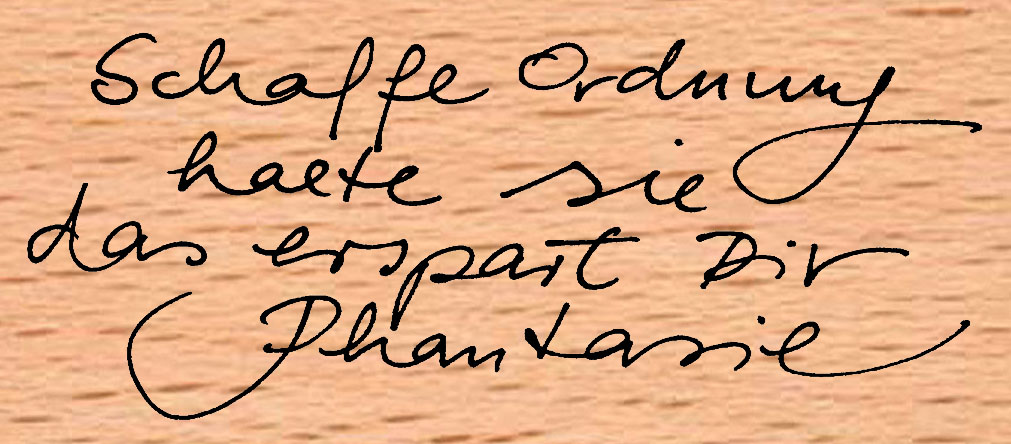 Schaffe Ordnung
halte sie
das erspart Dir
Phantasie